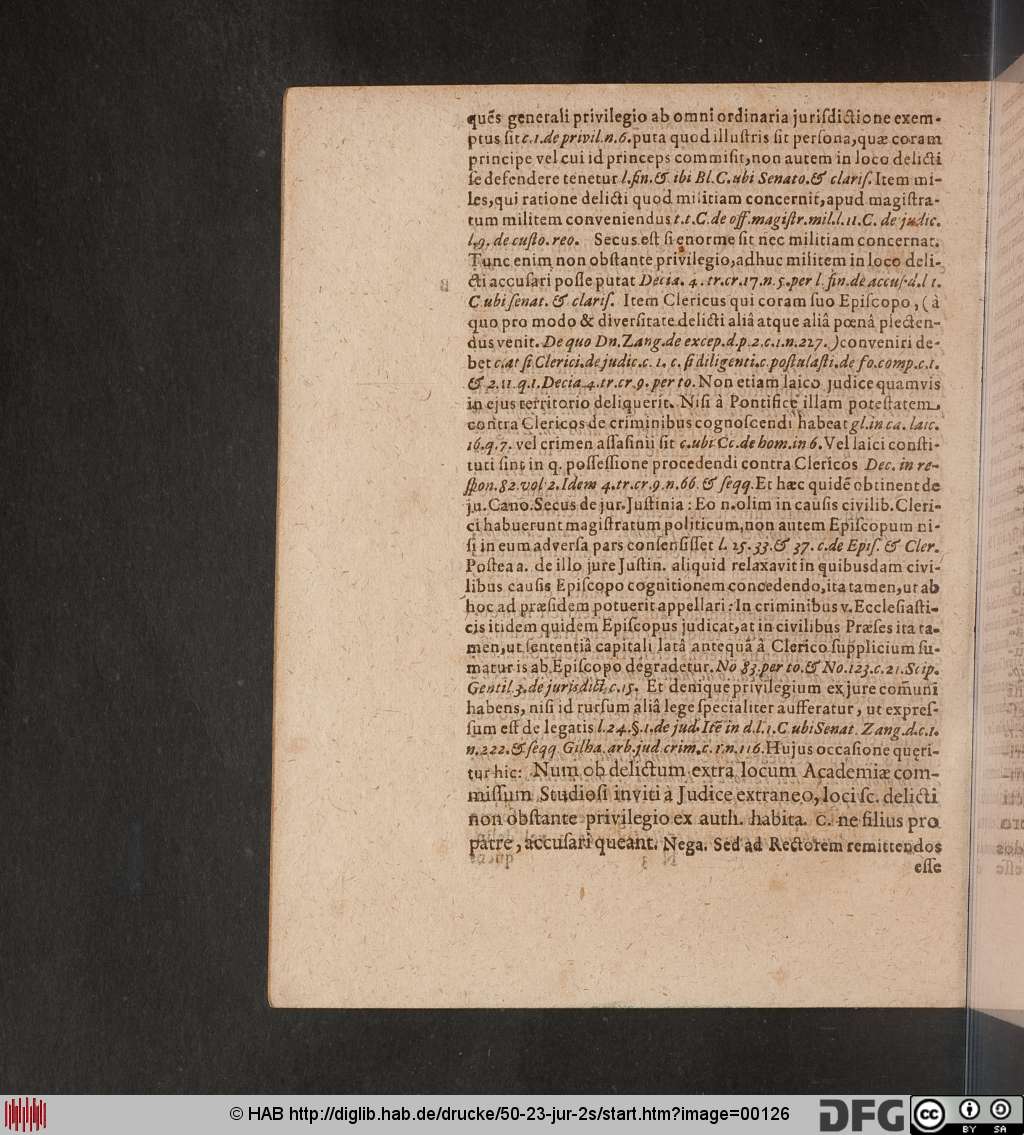 quẽs generali privilegio ab omni ordinaria juriſdictione exem-
ptus ſit c.1.de privil.n.6.puta quod illuſtris ſit perſona,quæ coram
principe vel cui id princeps commiſit,non autem in loco delicti
ſe defendere tenetur l.fin.& ibi Bl.C.ubi Senato.& clariſ. Item mi-
les,qui ratione delicti quod militiam concernit,apud magiſtra-
tum militem conveniendus t.t.C.de off.magiſtr.mil.l.11.C. de judic.
l.9. de cuſto. reo. Secus eſt ſi enorme ſit nec militiam concernat.
Tunc enim non obſtante privilegio,adhuc militem in loco deli-
cti accuſari poſſe putat Decia. 4. tr.cr.17.n.5.per l. fin.de accuſ.d.l 1.
C ubi ſenat. & clariſ. Item Clericus qui coram ſuo Epiſcopo, (à
quo pro modo & diverſitate delicti aliâ atque aliâ pœnâ plecten-
dus venit. De quo Dn.Zang.de excep.d.p.2.c.1.n.227.)conveniri de-
bet c.at ſi Clerici.de judic.c. 1. c. ſi diligenti.c.poſtulaſti.de fo.comp.c.1.
& 2.11.q.1.Decia.4.tr.cr.9.per to.Non etiam laico judice quamvis
in ejus territorio deliquerit. Niſi à Pontifice illam poteſtatem,
contra Clericos de criminibus cognoſcendi habeat gl.in ca. laic.
16.q.7. vel crimen aſſaſinii ſit c.ubi Cc.de hom.in 6.Vel laici conſti-
tuti ſint in q. poſſeſſione procedendi contra Clericos Dec. in re-
ſpon.82.vol 2.Idem 4.tr.cr.9.n.66.& ſeqq.Et hæc quidẽ obtinent de
ju.Cano.Secus de jur.Juſtinia: Eo n.olim in cauſis civilib.Cleri-
ci habuerunt magiſtratum politicum,non autem Epiſcopum ni-
ſi in eum adverſa pars conſenſiſſet l. 25.33.& 37. c.de Epiſ. & Cler.
Poſtea a. de illo jure Juſtin. aliquid relaxavit in quibusdam civi-
libus cauſis Epiſcopo cognitionem concedendo,ita tamen,ut ab
hoc ad præſidem potuerit appellari: In criminibus v. Eccleſiaſti-
cis itidem quidem Epiſcopus judicat,at in civilibus Præſes ita ta-
men,ut ſententiâ capitali latâ antequâ à Clerico ſupplicium ſu-
matur is ab Epiſcopo degradetur. No 83.per to.& No.123.c.21.Scip.
Gentil 3.de jurisdict.c.15. Et denique privilegium ex jure com̃uni
habens, niſi id rurſum aliâ lege ſpecialiter aufferatur, ut expreſ-
ſum eſt de legatis l.24.§.1.de jud.Itẽ in d.l.1.C ubi Senat. Zang.d.c.1.
n.222.& ſeqq Gilha.arb.jud.crim.c.1.n.116.Hujus occaſione quęri-
tur hic: Num ob delictum extra locum Academiæ com-
miſſum Studioſi inviti à Judice extraneo, loci ſc. delicti
non obſtante privilegio ex auth. habita. C. ne filius pro
patre, accuſari queant. Nega. Sed ad Rectorem remittendos
eſſe
© HAB http://diglib.hab.de/drucke/50-23-jur-2s/start.htm?image=00126
DFG
cc BY SA